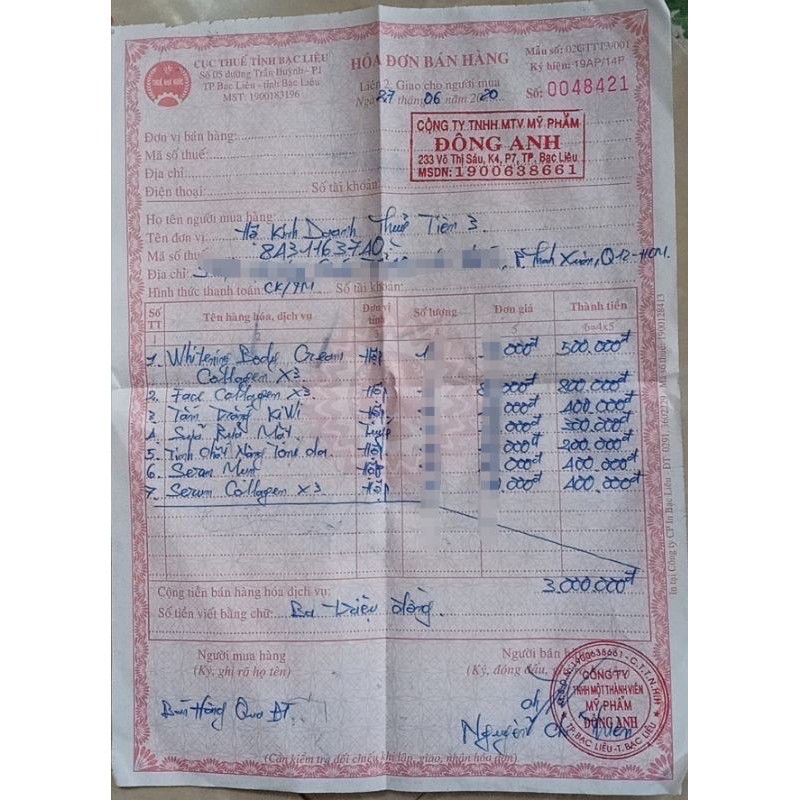 CỤC THUẾ TỈNH BẠC LIÊU
Số 05 đường Trần Huỳnh - P.1
TP Bạc Liêu - tỉnh Bạc Liêu
MST: 1900183196
THUẾ NHÀ NƯỚC
HÓA ĐƠN BÁN HÀNG
Liên 2: Giao cho người mua
Ngày 27 tháng 06 năm 2020
Mẫu số: 02GTTT3/001
Ký hiệu: 19AP/14P
Số: 0048421
Đơn vị bán hàng:
Mã số thuế:
Địa chỉ:
Điện thoại: Số tài khoản:
CÔNG TY TNHH MTV MỸ PHẨM
ĐÔNG ANH
233 Võ Thị Sáu, K4, P7, TP. Bạc Liêu
MSDN: 1900638661
Họ tên người mua hàng:
Tên đơn vị: Hộ Kinh Doanh Thuỷ Tiên 3
Mã số thuế: 8431163740
Địa chỉ: P. Thạnh Xuân, Q12-HCM.
Hình thức thanh toán: CK/TM Số tài khoản:
Số TT Tên hàng hóa, dịch vụ Đơn vị tính Số lượng Đơn giá Thành tiền
1 5 6=4x5
1. Whitening Body Cream Hộp 1 000đ 500.000đ
Collagen X3
2. Face Collagen X3 Hộp 000đ 800.000đ
3 Tắm Trắng KiWi Hộp 000đ 400.000đ
4 Sữa Rửa Mặt Tuýp 000đ 300.000đ
5. Tinh Chất Nâng Tone da Hộp 000đ 200.000đ
6. Serum Mụn Hộp 000đ 400.000đ
7. Serum Collagen X3 Hộp 000đ 400.000đ
Cộng tiền bán hàng hóa dịch vụ: 3.000.000đ
Số tiền viết bằng chữ: Ba Triệu đồng.
Người mua hàng
(Ký, ghi rõ họ tên)
Bán Hàng Qua ĐT
Người bán hàng
(Ký, đóng dấu,
Nguyễn
CÔNG TY
TNHH MỘT THÀNH VIÊN
MỸ PHẨM
ĐÔNG ANH
TP. BẠC LIÊU - T. BẠC LIÊU
(Cần kiểm tra đối chiếu khi lập, giao, nhận hóa đơn)
In tại Công ty CP In Bạc Liêu - ĐT: 0291.3602229 - Mã số thuế: 1900128413